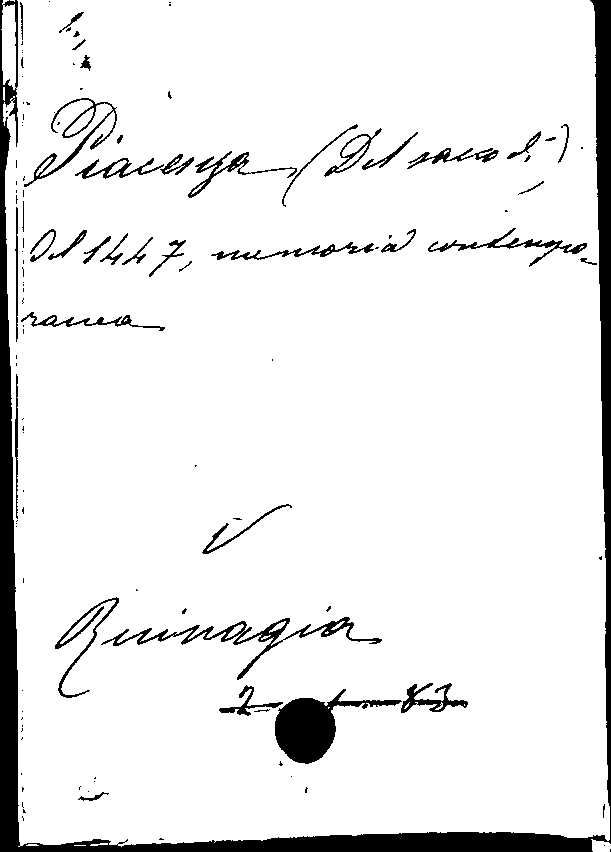 Piacenza (Del sacco di)
del 1447, memoria contempo-
ranea.
V
Ruinagia